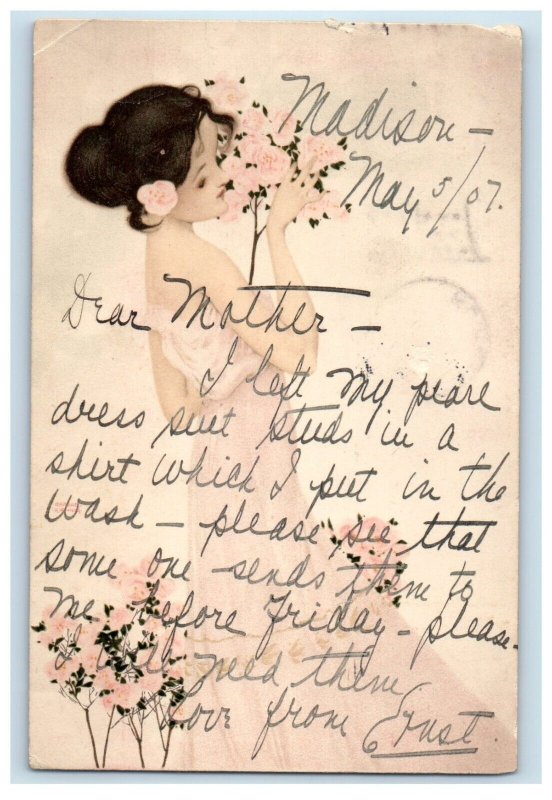 Madison –
May 5/07.
Dear Mother –
I left my pearl
dress suit studs in a
shirt which I put in the
wash – please see that
some one sends them to
me before Friday – please –
I will need them
Love from Ernst.